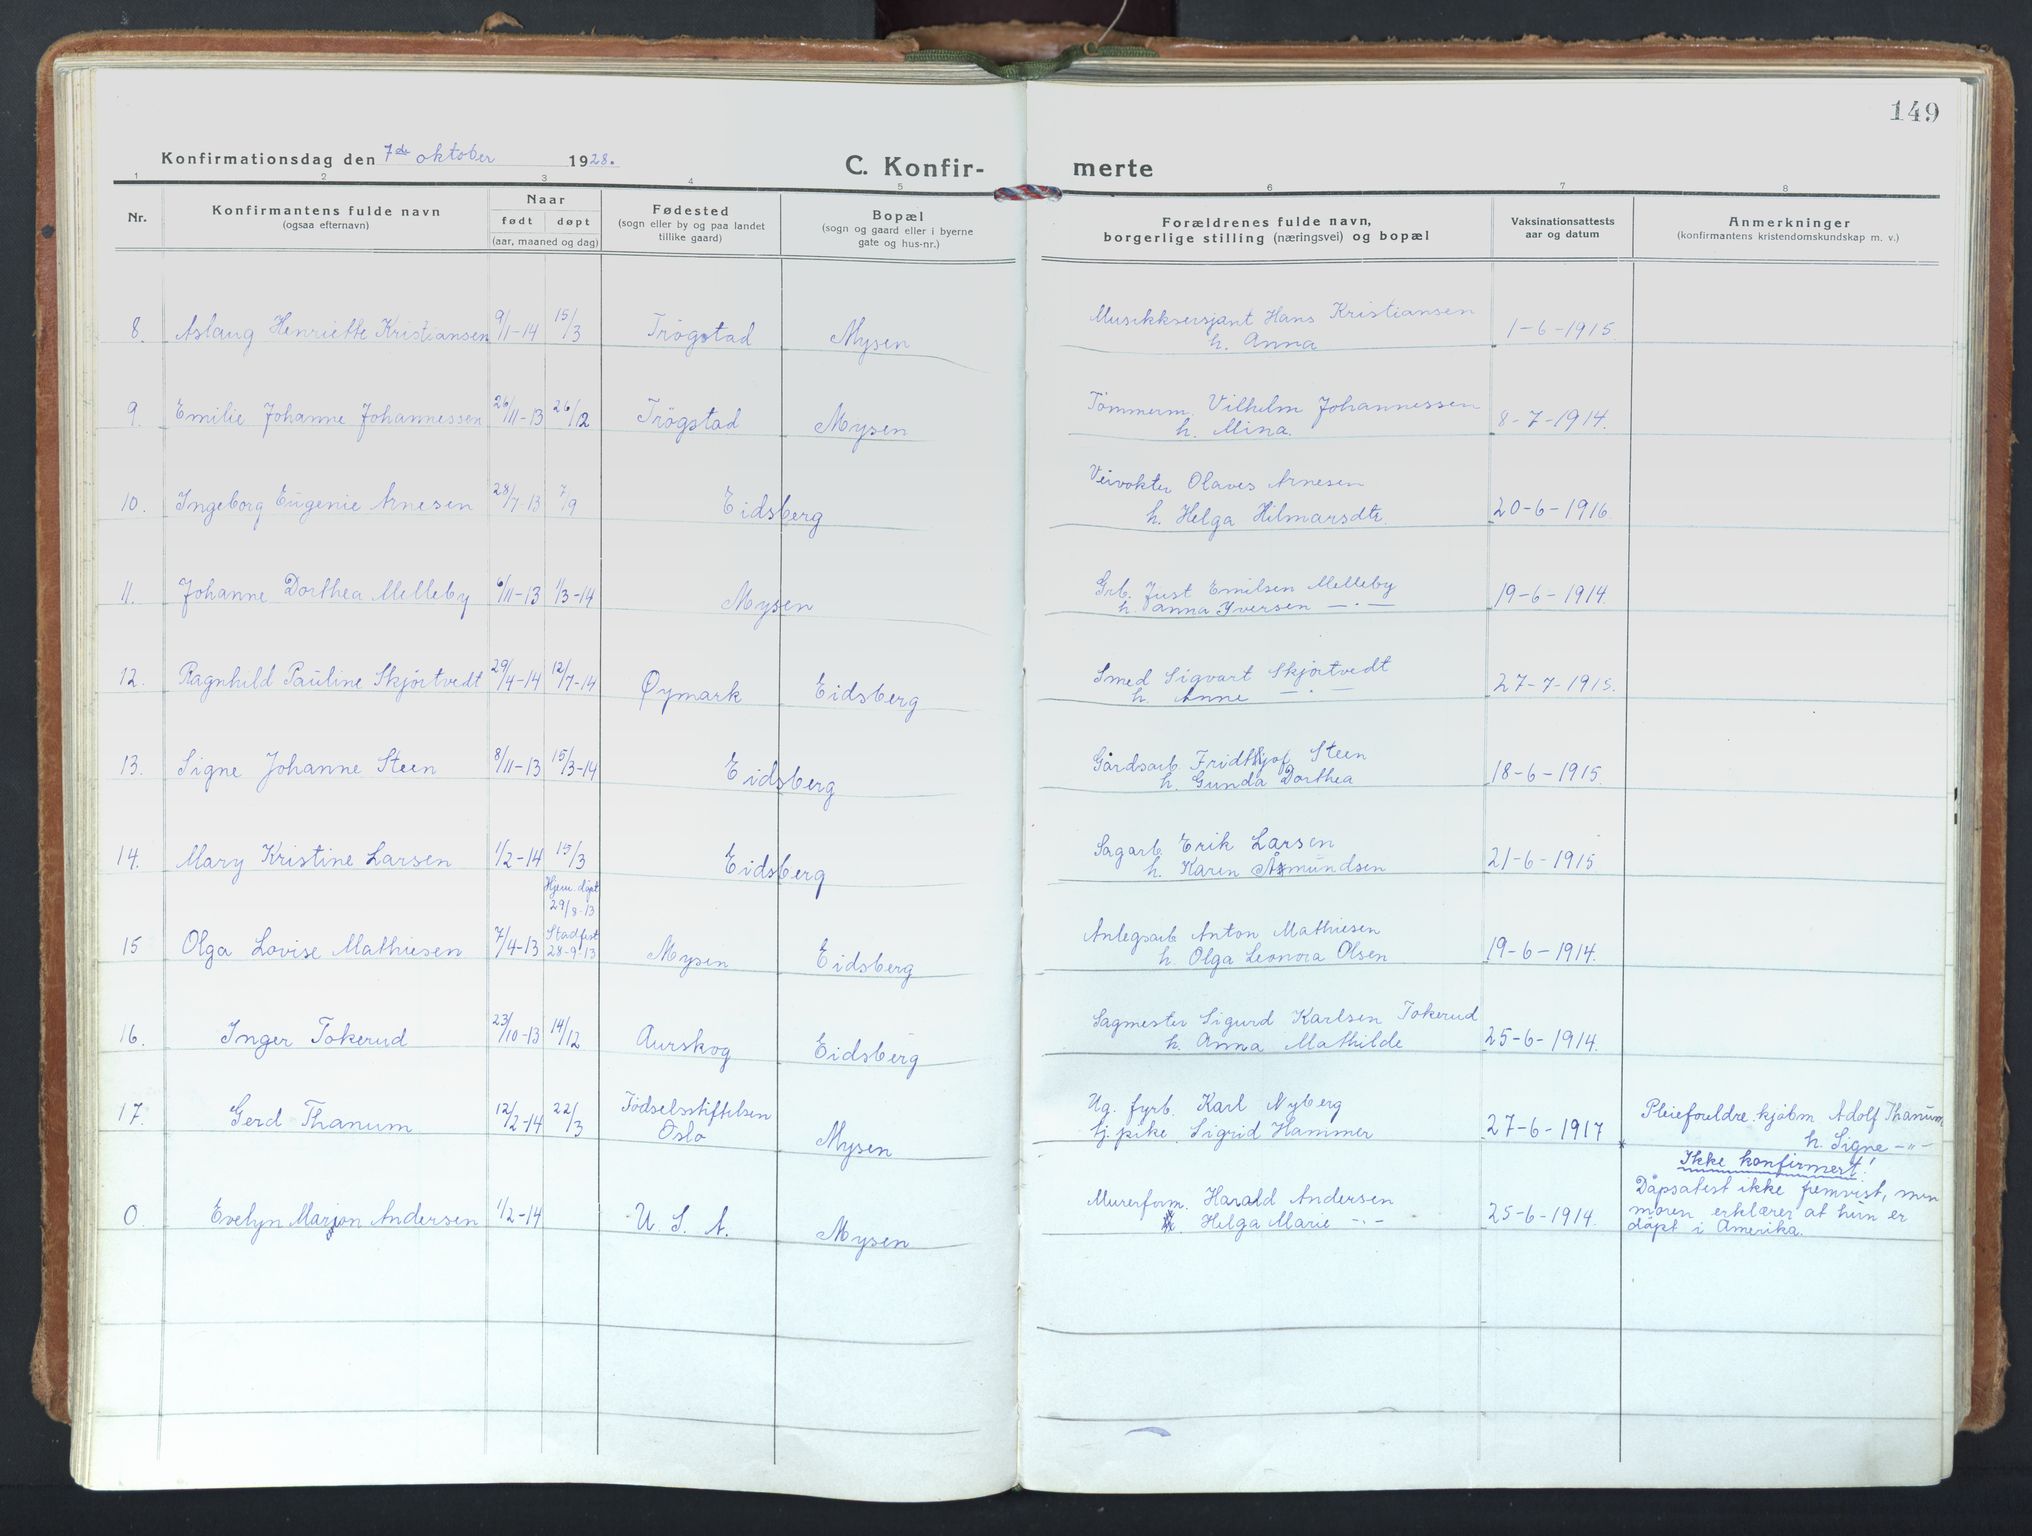 149
Konfirmationsdag den 7de oktober 1928.
C. Konfir- merte
1 2 3 4 5 6 7 8
Nr.
Konfirmantens fulde navn
(ogsaa efternavn)
Naar
født døpt
(aar, maaned og dag)
Fødested
(sogn eller by og paa landet
tillike gaard)
Bopæl
(sogn og gaard eller i byerne
gate og hus-nr.)
Forældrenes fulde navn,
borgerlige stilling (næringsvei) og bopæl
Vaksinationsattests
aar og datum
Anmerkninger
(konfirmantens kristendomskundskap m. v.)
8. Aslaug Henriette Kristiansen 9/1-14 15/3 Trögstad Mysen Musikksersjant Hans Kristiansen 1-6-1915.
h. Anna
9. Emilie Johanne Johannessen 26/11-13 26/12 Trögstad Mysen Tömmerm. Vilhelm Johannessen 8-7-1914.
h. Mina.
10. Ingeborg Eugenie Arnesen 28/7-13 7/9 Eidsberg Veivokter Olaves Arnesen
h. Helga Hilmarsdtr. 20-6-1916.
11. Johanne Dorthea Melleby 6/11-13 1/3-14 Mysen Grb. Just Emilsen Melleby 19-6-1914.
h. Anna Yversen —·—
12. Ragnhild Pauline Skjörtvedt 29/4-14 12/7-14 Øymark Eidsberg Smed Sigvart Skjörtvedt 27-7-1915.
h. Anne —·—
13. Signe Johanne Steen 8/11-13 15/3-14 Eidsberg Gårdsarb. Fridthjof Steen 18-6-1915.
h. Gunda Dorthea
14. Mary Kristine Larsen 1/2-14 15/3 Eidsberg Sagarb. Erik Larsen 21-6-1915
h. Karen Åsmundsen
Hjem döpt
29/8-13
15 Olga Lovise Mathiesen 7/4-13 Stadfest
28-9-13 Mysen Eidsberg Anlegsarb Anton Mathiesen 19-6-1914.
h. Olga Leonora Olsen
16. Inger Tokerud 23/10-13 14/12 Aurskog Eidsberg Sagmester Sigurd Karlsen Tokerud 25-6-1914.
h. Anna Mathilde
17. Gerd Thanum 12/2-14 22/3 Födselsstiftelsen
Oslo Mysen Ug. fyrb. Karl Nyberg 27-6-1917 Pleieforeldre. kjøbm Adolf Thanum
tj. pike. Sigrid Hammer h. Signe -"-
Ikke konfirmert!
0. Evelyn Marjon Andersen 1/2-14 U. S. A. Mysen Murerform. Harald Andersen 25-6-1914. Dåpsatest ikke fremvist, men
h. Helga Marie -·- moren erklærer at hun er
döpt i Amerika.